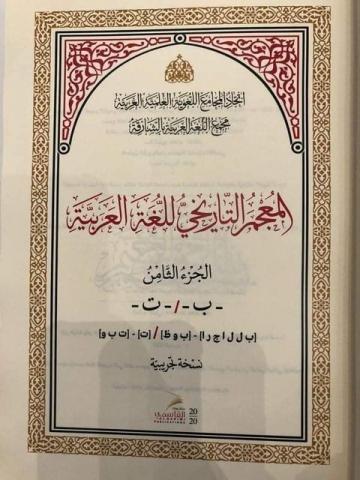 اتحاد المجامع اللغوية العلمية العربية
مجمع اللغة العربية بالشارقة
المُعْجَمُ التَّارِيخِيُّ لِلُّغَةِ العَرَبِيَّةِ
الجُزْءُ الثَّامِنُ
- ب - / - ت -
[ب ل ل ا ج ر ا] - [ب و ظ] / [ت] - [ت ب و]
نُسْخَة تَجْرِيبِيَّة
القاسمي
AL QASIMI
PUBLICATIONS
20
20